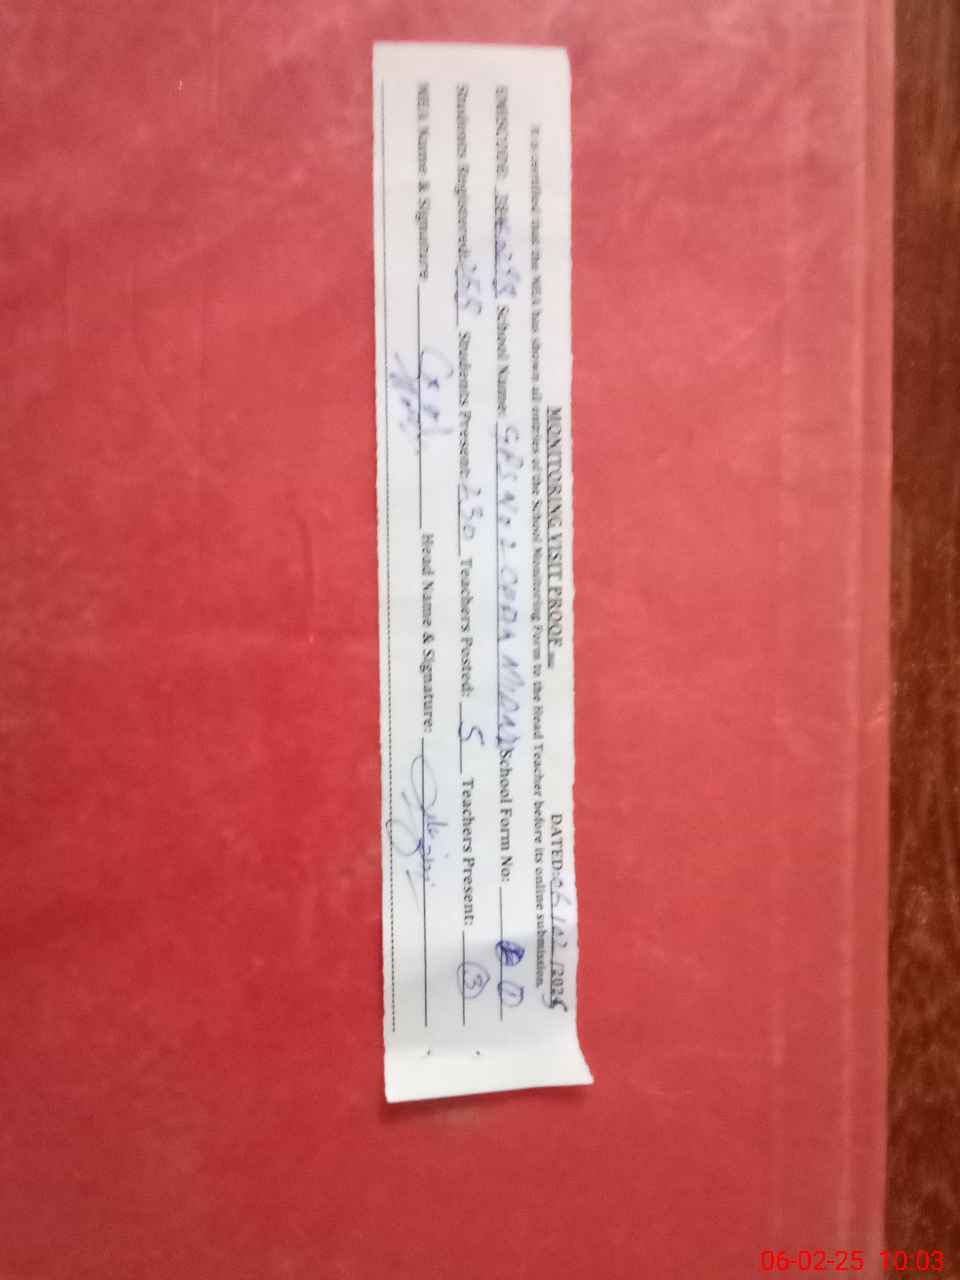 MONITORING VISIT PROOF DATED: 06/02/2025
It is certified that the MEA has shown all entries of the School Monitoring Form to the Head Teacher before its online submission.
EMISCODE: School Name: GPS No 2 School Form No: 1
Students Registered: 255 Students Present: 230 Teachers Posted: 5 Teachers Present: 3
MEA Name & Signature: Head Name & Signature:
06-02-25 10:03